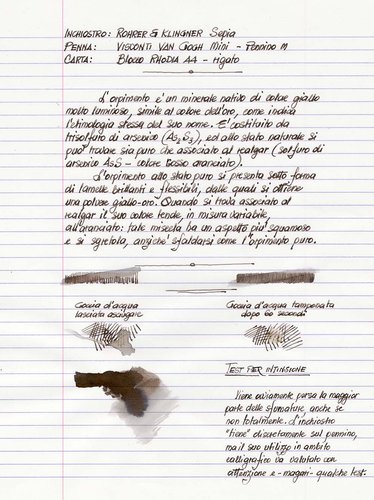 INCHIOSTRO: ROHRER & KLINGNER Sepia
PENNA: VISCONTI VAN GOGH Mini - Pennino M
CARTA: BLOCCO RHODIA A4 - rigato
L'orpimento e' un minerale nativo di colore giallo
molto luminoso, simile al colore dell'oro, come indica
l'etimologia stessa del suo nome. E' costituito da
trisolfuro di arsenico (As2S3), ed allo stato naturale si
puo' trovare sia puro che associato al realgar (solfuro di
arsenico AsS - colore rosso aranciato).
L'orpimento allo stato puro si presenta sotto forma
di lamelle brillanti e flessibili, dalle quali si ottiene
una polvere giallo-oro. Quando si trova associato al
realgar il suo colore tende, in misura variabile,
all'aranciato: tale miscela ha un aspetto piu' squamoso
e si sgretola, anziche' sfaldarsi come l'orpimento puro.
Goccia d'acqua
lasciata asciugare
Goccia d'acqua tamponata
dopo 60 secondi
TEST PER INTINSIONE
Viene ovviamente persa la maggior
parte delle sfumature, anche se
non totalmente. L'inchiostro
"tiene" discretamente sul pennino,
ma il suo utilizzo in ambito
calligrafico va valutato con
attenzione e - magari - qualche test.